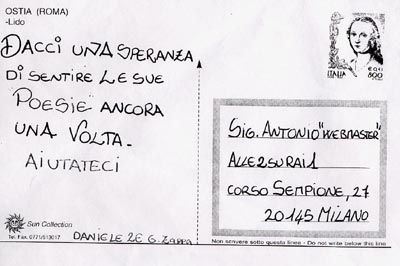 OSTIA (ROMA)
-Lido
DACCI UNA SPERANZA
DI SENTIRE LE SUE
POESIE ANCORA
UNA VOLTA.
AIUTATECI
Sun Collection
Tel. Fax. 0771/513017
DANIELE ZE G. ZAPPA
ITALIA
800
SIG. ANTONIO "WEBMASTER"
ALLE2SURAI1
CORSO SEMPIONE, 27
20145 MILANO
Non scrivere sotto questa linea - Do not write below this line